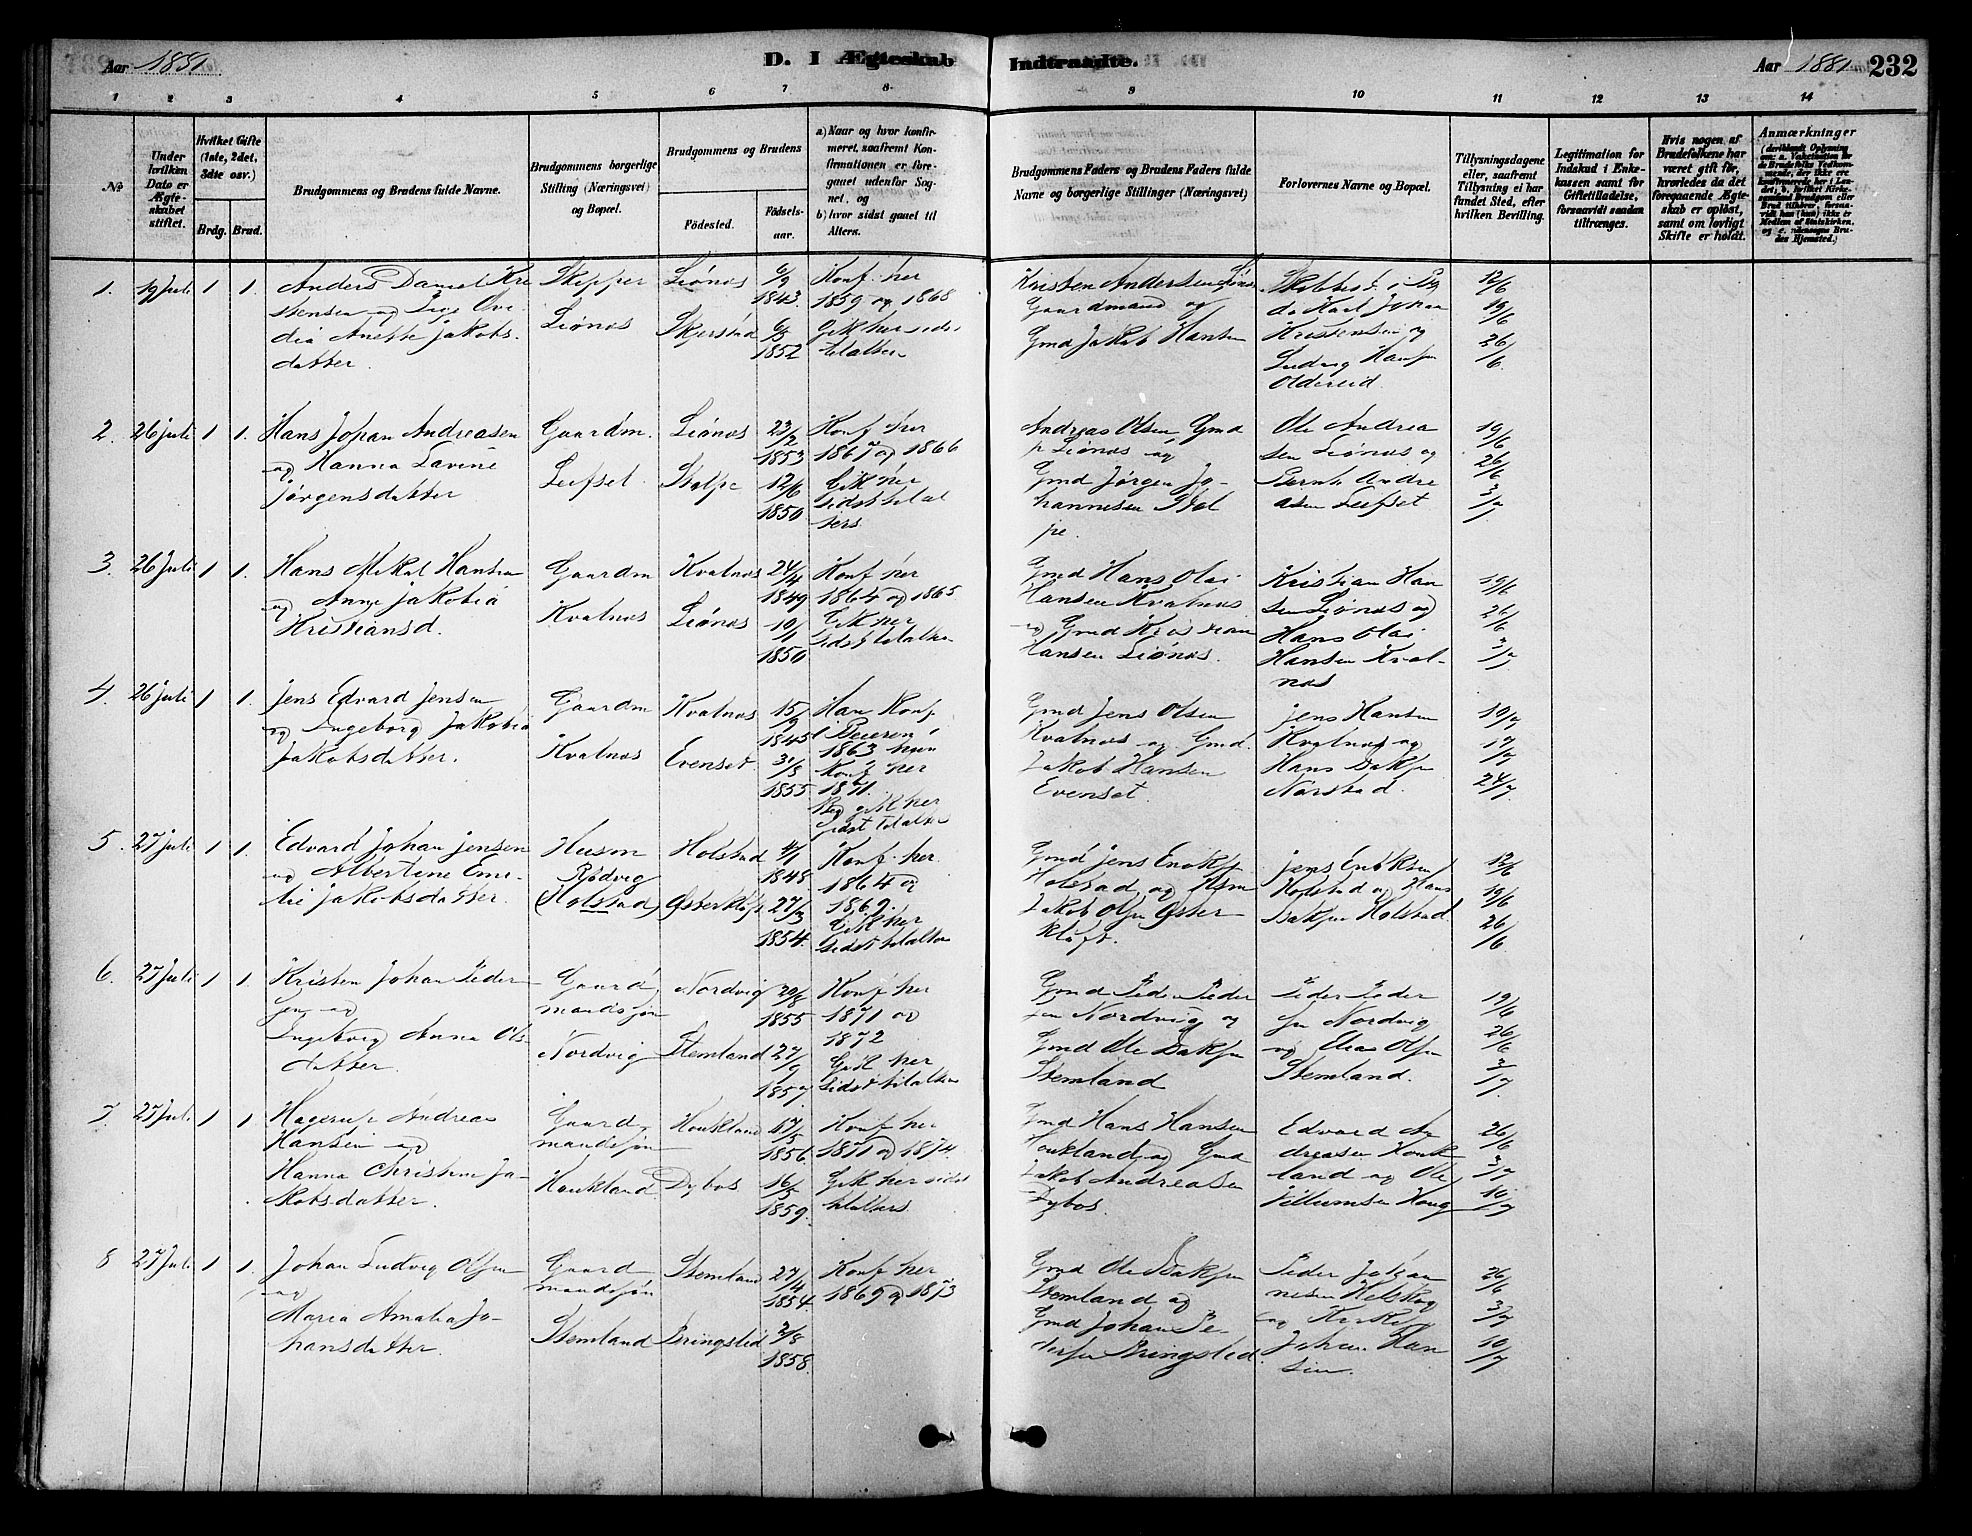 Aar 1881
D. I Ægteskab Indtraadte.
Aar 1881 232
1 2 3 4 5 6 7 8 9 10 11 12 13 14
No
Under hvilken Dato er Ægteskabet stiftet.
Hvilket Gifte (1ste, 2det, 3dte osv.)
Brdg. Brud.
Brudgommens og Brudens fulde Navne.
Brudgommens borgerlige Stilling (Næringsvei) og Bopæl.
Brudgommens og Brudens
Fødested. Fødselsaar.
a) Naar og hvor konfirmeret, saafremt Konfirmationen er foregaaet udenfor Sognet, og
b) hvor sidst gaaet til Alters.
Brudgommens Faders og Brudens Faders fulde Navne og borgerlige Stillinger (Næringsvei)
Forlovernes Navne og Bopæl.
Tillysningsdagene eller, saafremt Tillysning ei har fundet Sted, efter hvilken Bevilling.
Legitimation for Indskud i Enkekassen samt for Giftetilladelse, forsaavidt saadan tiltrænges.
Hvis nogen af Brudefolkene har været gift før, hvorledes da det foregaaende Ægteskab er opløst, samt om lovligt Skifte er holdt.
Anmærkninger
1. 19 juli 1 1. Anders Daniel Kristensen og Ovidia Anette Jakobsdatter.
Skipper Liønes
Liønes 6/9 1843
Skjerstad 6/5 1852
Konf. her 1859 og 1868 Gik her sidst til alters
Kristen Andersen Liønes Gaardmand og Gmd Jakob Hansen
Karl Johan Kristensen og Ludvig Hansen Oldereid
12/6 19/6 26/6
2. 26 juli 1 1. Hans Johan Andreasen og Hanna Lavine Jørgensdatter
Gaardm. Leifset.
Liønes 23/2 1853
Stolpe 12/6 1850
Konf her 1867 og 1866 Gik her sidst til alters
Andreas Olsen Gmd p Liønes og Gmd Jørgen Johannesen Stolpe.
Ole Andreasen Liønes og Bernt Andreasen Leifset
19/6 26/6 3/7
3. 26 Juli 1 1. Hans Mikal Hansen og Anne Jakobia Kristiansd.
Gaardm Kvalnes
Kvalnes 24/4 1849
Liønes 10/1 1850
Konf her 1864 og 1865. Gik her sidst til alters
Gmd Hans Olai Hansen Kvalnes og Gmd Kristian Hansen Liønes.
Kristian Hansen Liønes og Hans Olai Hansen Kvalnes
19/6 26/6 3/7
4. 26 juli 1 1. Jens Edvard Jensen og Ingeborg Jakobia Jakobsdatter.
Gaardm Kvalnes
Kvalnes 15/9 1845
Evenset 31/8 1855
Han Konf i Beieren 1863 hun Konf her 1871. Beg gik her sidst til alters
Gmd Jens Olsen Kvalnes og Gmd. Jakob Hansen Evenset.
Jens Hansen Kvalnes og Hans Isaksen Narstad.
10/7 17/7 24/7
5. 27 juli 1 1. Edvard Johan Jensen og Albertine Emelie Jakobsdatter.
Husm Rødvig (Holstad)
Holstad 4/1 1848
Østerkløft 27/3 1854.
Konf. her. 1864 og 1869. Gik her sidst til alters
Gmd Jens Eriksen Holstad og Jakob Olsen Østerkløft.
Jens Eriksen Holstad og Hans Isaksen Holstad
12/6 19/6 26/6
6. 27 Juli 1 1. Kristen Johan Pedersen og Ingeborg Anna Olsdatter.
Gaardmandssøn Nordvig
Nordvig 20/8 1855
Stemland 27/9 1857
Konf her 1871 og 1872 Gik her sidst til alters
Gmd Peder Pedersen Nordvig og Gmd Ole Isaksen Stemland
Peder Pedersen Nordvig og Elias Olsen Stemland.
19/6 26/6 3/7
7. 27 Juli 1 1 Hagerup Andreas Hansen og Hanna Christine Jakobsdatter.
Gaardmandssøn Haukland
Haukland 17/5 1856.
Dybos 16/5 1859.
Konf her 1871 og 1874. Gik her sidst til alters
Gmd Hans Hansen Haukland og Gmd Jakob Andreasen Dybos.
Edvard Andreasen Haukland og Ole Villumsen Haug
26/6 3/7 10/7
8 27 Juli 1 1. Johan Ludvig Olsen og Maria Amalia Johansdatter.
Gaardmandssøn Stemland
Stemland 27/4 1854
Bringslid 31/8 1858.
Konf her 1869 og 1873
Gmd Ole Isaksen Stemland og Gmd Johan Pedersen Bringslid
Peder Johannesen Kirke Johan Hansen.
26/6 3/7 10/7